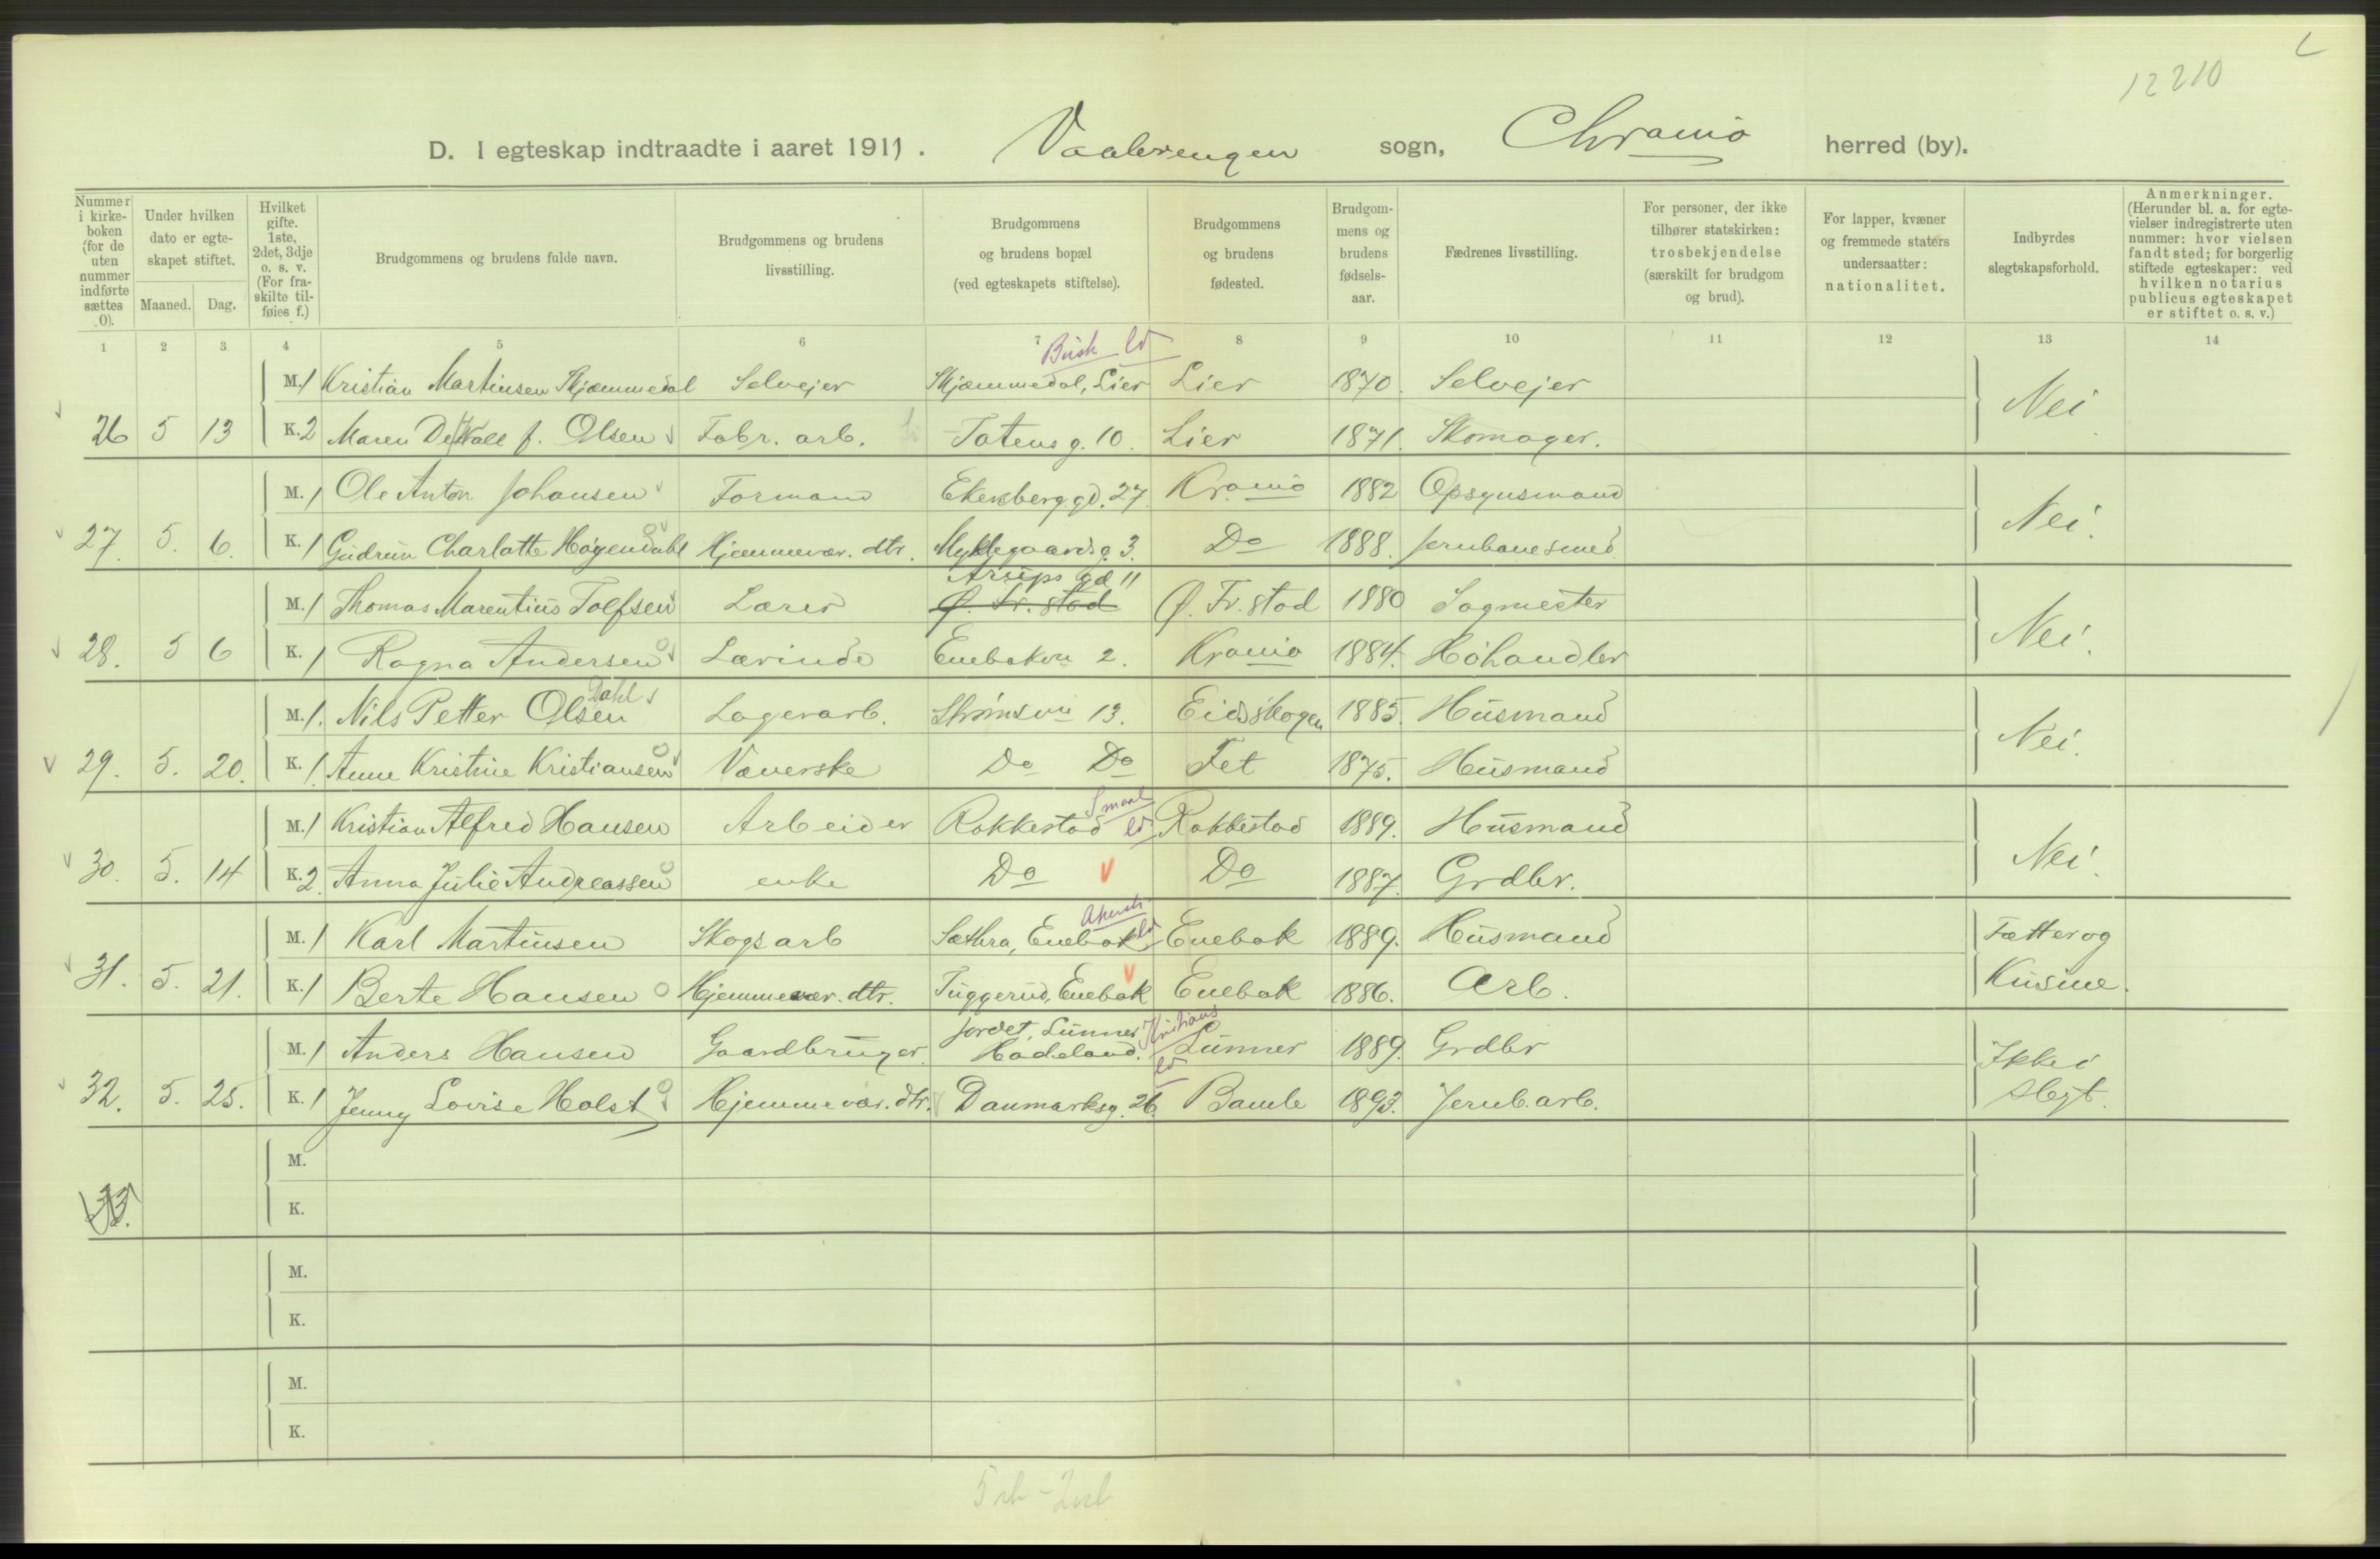 12210
D. I egteskap indtraadte i aaret 1911. Vaalerengen sogn, Chrania herred (by).
Nummer i kirkeboken (for de uten nummer indførte sættes 0).
Under hvilken dato er egteskapet stiftet.
Maaned. Dag.
Hvilket gifte. 1ste, 2det, 3dje o. s. v. (For fraskilte tilføies f.)
Brudgommens og brudens fulde navn.
Brudgommens og brudens livsstilling.
Brudgommens og brudens bopæl (ved egteskapets stiftelse).
Brudgommens og brudens fødested.
Brudgommens og brudens fødselsaar.
Fædrenes livsstilling.
For personer, der ikke tilhører statskirken: trosbekjendelse (særskilt for brudgom og brud).
For lapper, kvæner og fremmede staters undersaatter: nationalitet.
Indbyrdes slegtskapsforhold.
Anmerkninger. (Herunder bl. a. for egtevielser indregistrerte uten nummer: hvor vielsen fandt sted; for borgerlig stiftede egteskaper: ved hvilken notarius publicus egteskapet er stiftet o. s. v.)
1 2 3 4 5 6 7 8 9 10 11 12 13 14
Busk
M. 1 Kristian Martinsen Skjæmmedal Selvejer Skjæmmedal, Lier Lier 1870. Selvejer
26 5 13 K. 2 Maren De Wall f. Olsen Fabr. arb. Totens g. 10. Lier 1871. Skomager. Nei
M. 1 Ole Anton Johansen Formand Ekeberggd. 27 Krania 1882 Opsynsmand
27. 5. 6. K. 1 Gudrun Charlotte Høgendahl Hjemmevær. dtr. Myklegaardsg. 3. Do 1888. Jernbanesmed Nei.
Arups gd 11
M. 1 Thomas Marentius Tolfsen Lærer Ø. Fr. stad Ø. Fr. stad 1880 Sagmester
28. 5 6 K. 1 Ragna Andersen Lærinde Enebakvn 2. Krania 1884. Høhandler Nei.
Dahl
M. 1. Nils Petter Olsen Lagerarb. Strømsvn 13. Eidskogen 1885. Husmand
29. 5. 20. K. 1. Anne Kristine Kristiansen Væverske Do Do Fet 1875. Husmand Nei.
Smaal
M. 1 Kristian Alfred Hansen Arbeider Rakkestad Rakkestad 1889. Husmand
30. 5. 14 K. 2. Anna Julie Andreassen enke Do Do 1887. Grdbr. Nei.
Akersh
M. 1 Karl Martinsen Skogsarb Sæthra, Enebak Enebak 1889. Husmand Fætter og
31. 5. 21. K. 1 Berte Hansen Hjemmevær. dtr. Tuggerud, Enebak Enebak 1886. Arb. Kusine.
Jordet, Lunner Kristians
M. 1 Anders Hansen Gaardbruger. Hadeland. Lunner 1889. Grdbr Ikke i
32. 5. 25. K. 1 Jenny Lovise Holst Hjemmevær. dtr. Danmarksg. 26. Bamle 1893. Jernb. arb. slegt.
M.
33. K.
M.
K.
M.
K.